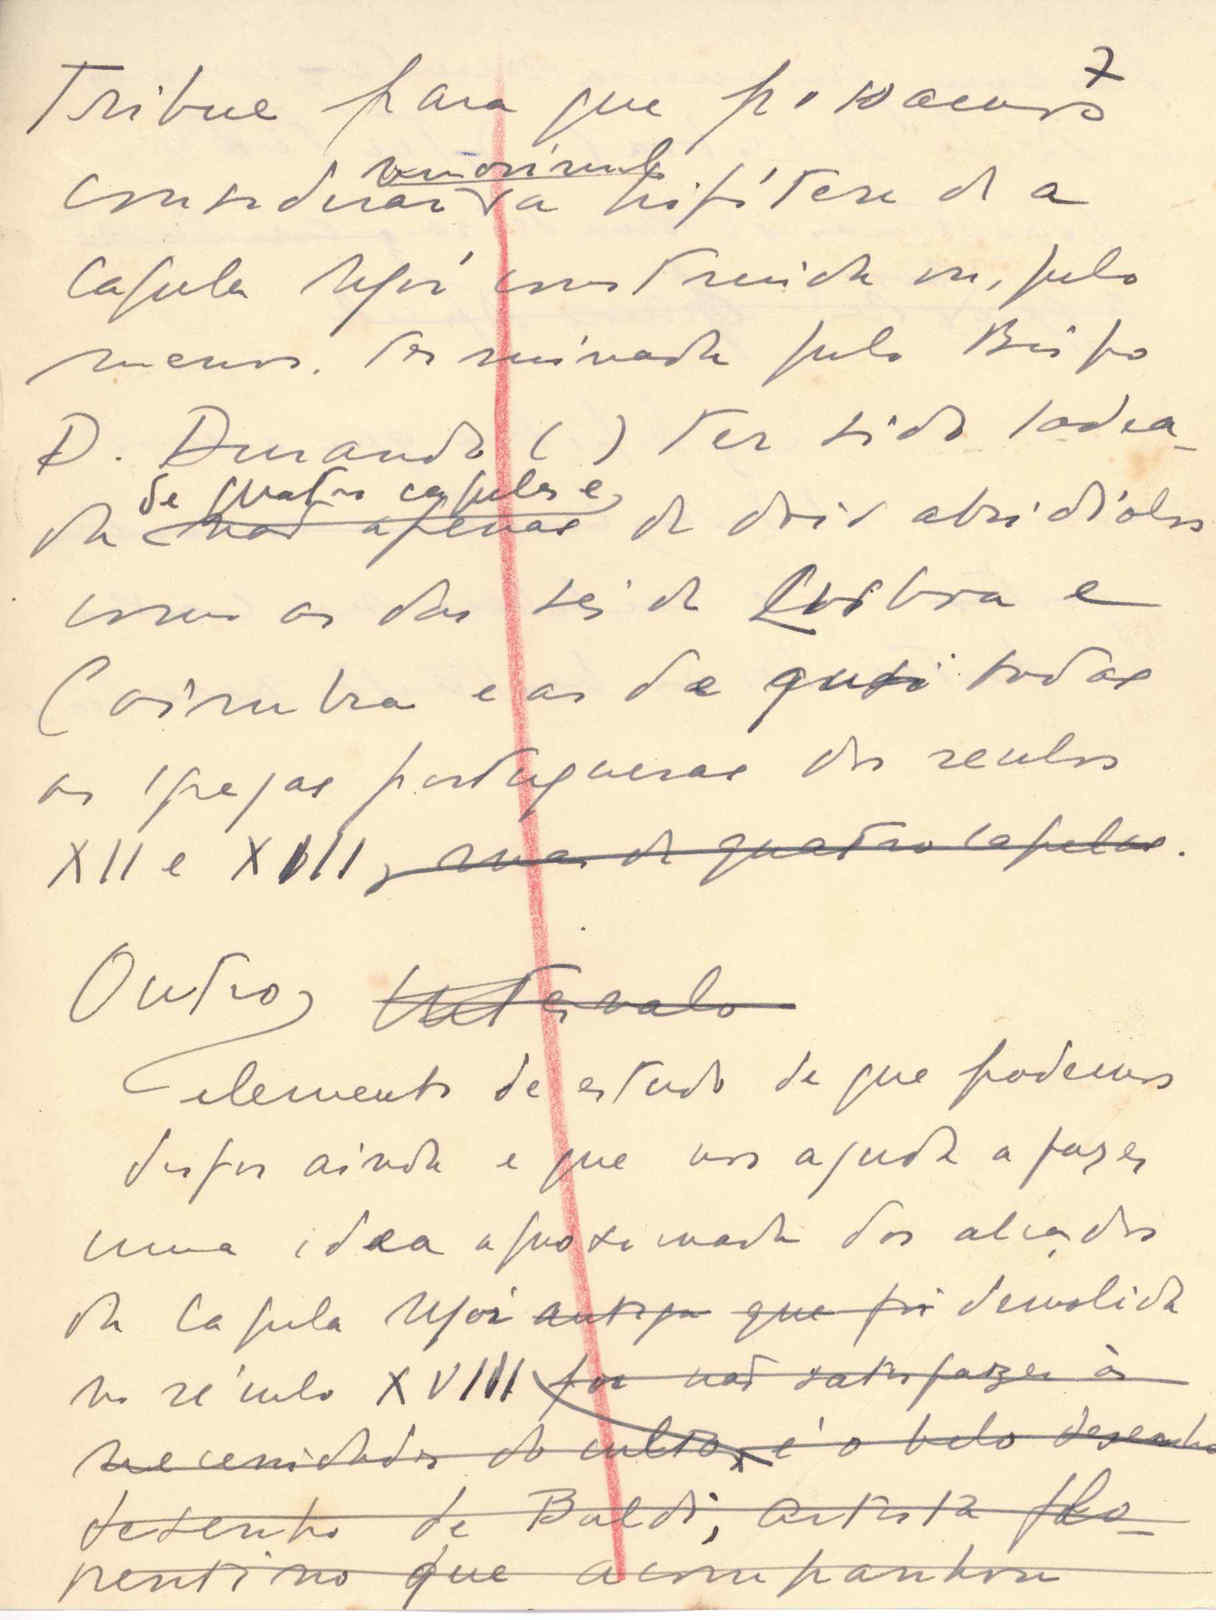 7
Tribue para que possamos
verosímil
considerar a hipótese de a
capela mór construida ou, pelo
menos, terminada pelo Bispo
D. Durando ( ) ter sido rodea-
de quatro capelas e
da não apenas de dois absidíolos
como os das sés de Lisboa e
Coimbra e as de quasi todas
as igrejas portuguesas dos seculos
XII e XIII, mas de quatro capelas.
Outro, intervalo
elemento de estudo de que podemos
dispor ainda e que nos ajuda a fazer
uma idea aproximada dos alçados
da capela mór antiga que foi demolida
no século XVIII por não satisfazer às
necessidades do culto, é o belo desenho
desenho de Baldi, artista flo-
rentino que acompanhou